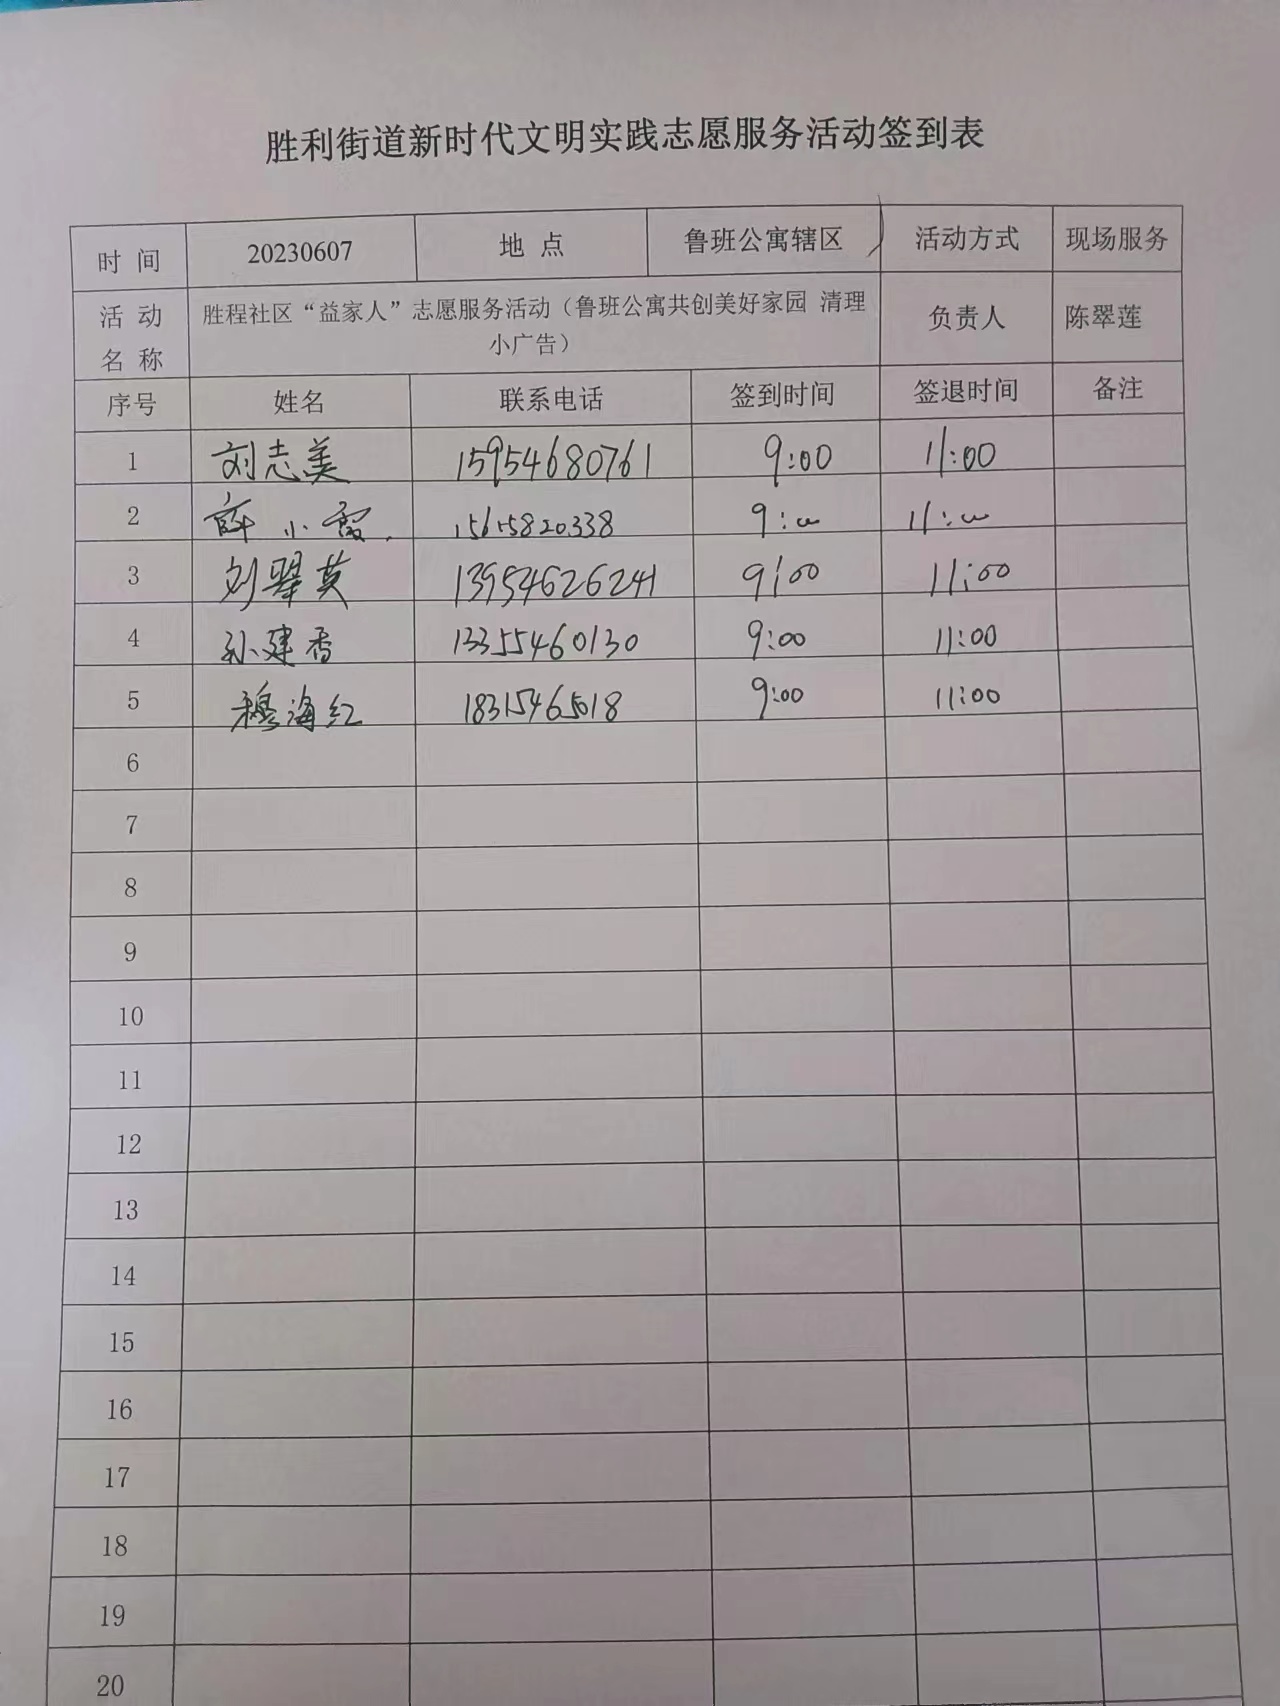 胜利街道新时代文明实践志愿服务活动签到表
时 间 20230607 地 点 鲁班公寓辖区 活动方式 现场服务
活 动 名 称 胜程社区“益家人”志愿服务活动（鲁班公寓共创美好家园 清理 小广告） 负责人 陈翠莲
序号 姓名 联系电话 签到时间 签退时间 备注
1 刘志美 15954680761 9:00 11:00
2 薛小霞 15615820338 9:00 11:00
3 刘翠英 13954626241 9:00 11:00
4 孙建香 13355460130 9:00 11:00
5 穆海红 18315465018 9:00 11:00
6
7
8
9
10
11
12
13
14
15
16
17
18
19
20